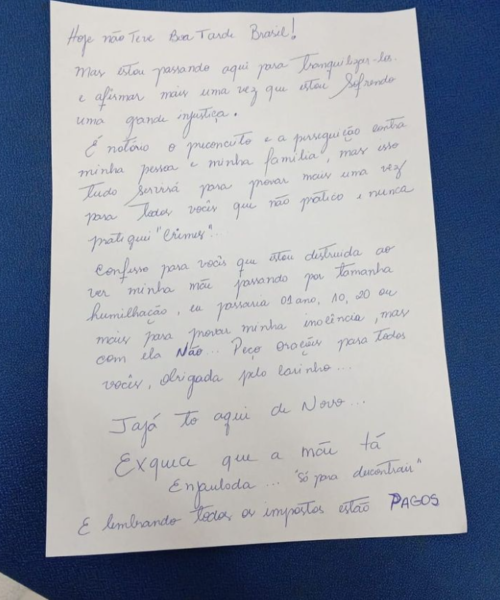 Hoje não Teve Boa Tarde Brasil!
Mas estou passando aqui para tranquilizar-los
e afirmar mais uma vez que estou Sofrendo
uma grande injustiça.
É notório o preconceito e a perseguição contra
minha pessoa e minha família, mas isso
tudo Servirá para provar mais uma vez
para todos vocês que não pratico e nunca
pratiquei "Crimes"...
Confesso para vocês que estou destruida ao
ver minha mãe passando por tamanha
humilhação, eu passaria 01 ano, 10, 20 ou
mais para provar minha inocência, mas
com ela Não... Peço orações para todos
vocês, obrigada pelo carinho...
Jajá to aqui de Novo...
Exquece que a mãe tá
Enjaulada... "só para decontrair"
E lembrando todos os impostos estão PAGOS